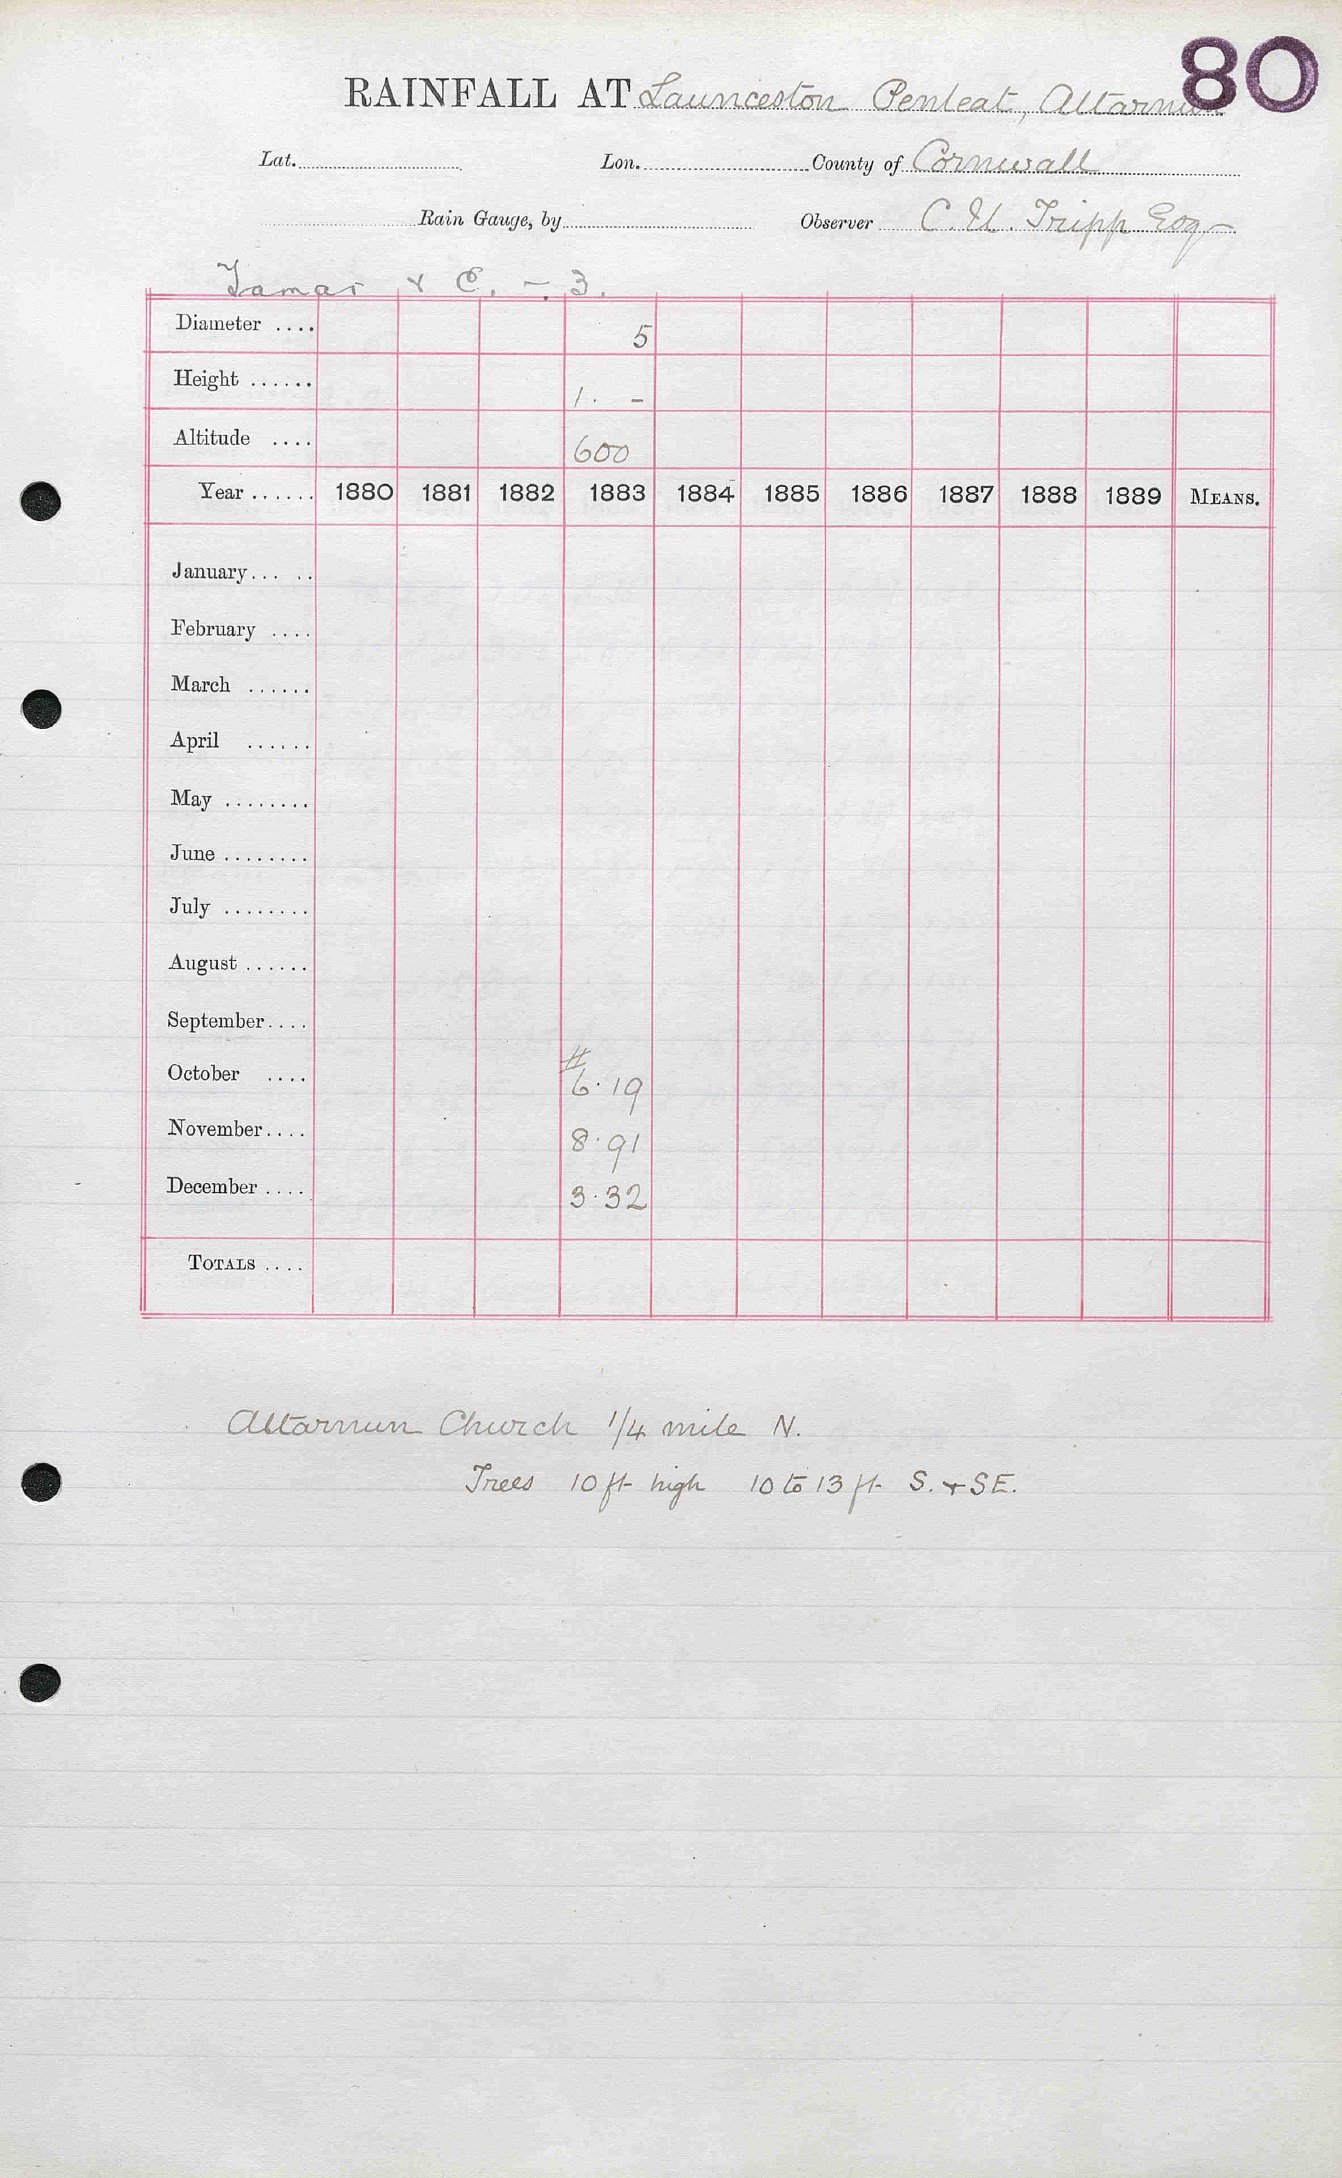 80
RAINFALL AT Launceston Penleat, Altarnun
Lat. Lon. County of Cornwall
Rain Gauge, by Observer C. U. Tripp Esq
Tamar & C. - 3.
Diameter .... 5
Height ...... 1. -
Altitude .... 600
Year ...... 1880 1881 1882 1883 1884 1885 1886 1887 1888 1889 MEANS.
January... ..
February ....
March ......
April ......
May ........
June ........
July ........
August ......
September....
#
October .... 6.19
November.... 8.91
December .... 3.32
TOTALS ....
Altarnun Church 1/4 mile N.
Trees 10 ft high 10 to 13 ft S. & SE.